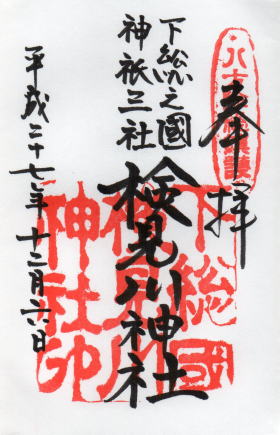 奉拝
下総之國
神祇三社
検見川神社
平成二十七年十二月六日
下総國
検見川
神社印